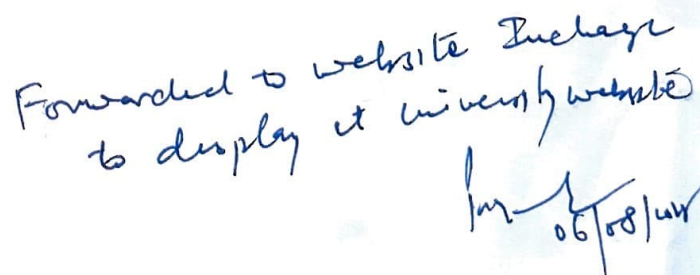 Forwarded to website Incharge
to display at university website
06/08/